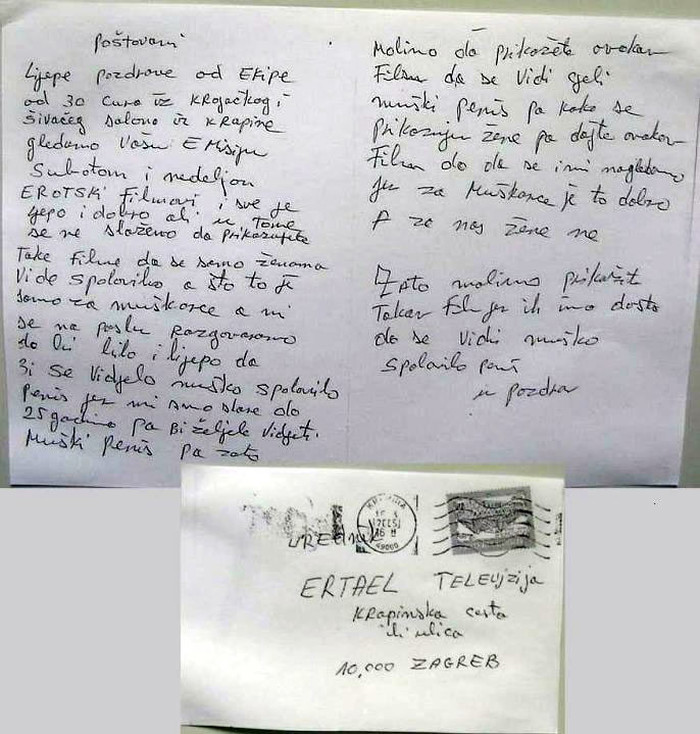 Poštovani
Lijepe pozdrave od Ekipe
od 30 cura iz KRojačkog i
šivaćeg salona iz KRAPINE
gledamo Vašu EMisiju
Subotom i nedeljom
EROTSKI Filmovi i sve je
ljepo i dobro ali u tome
se ne slažemo da prikazujete
Take Filme da se samo ženama
Vide Spolovilo a što to je
samo za muškarce a mi
se na poslu Razgovaramo
da bi bilo i lijepo da
bi se Vidjelo muško Spolovilo
Penis jer mi smo stare do
25 godina pa bi željele Vidjeti
Muški Penis pa zato
Molimo da prikažete ovakav
Film da se Vidi cjeli
muški penis pa kako se
Prikazuju žene pa dajte ovakav
Film da da se i mi nagledamo
jer za Muškarce je to dobro
A za nas žene ne
Zato molimo prikažit
Takav Film jer ih ima dosta
da se Vidi muško
Spolovilo
u pozdrav
KRAPINA
49000
UREDNIK
ERTAEL TELEVIZIJA
KRapinska cesta
ili ulica
10,000 ZAGREB